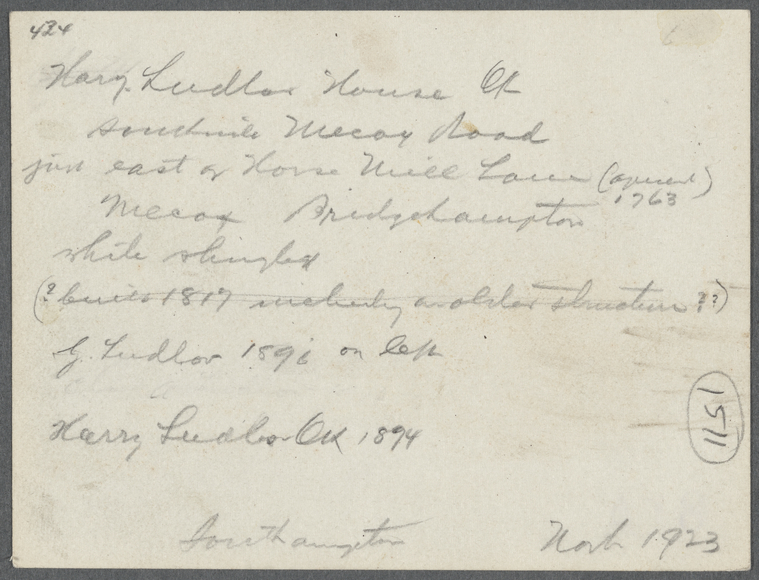 424
Harry Ludlow House OK
southside Mecox Road
just east of Horse Mill Lane (opened)
1763
Mecox Bridgehampton
white shingled
(? built 1817 an older structure ??)
G. Ludlow 1896 on left
Harry Ludlow OK 1894
1151
Southampton Nov 1923